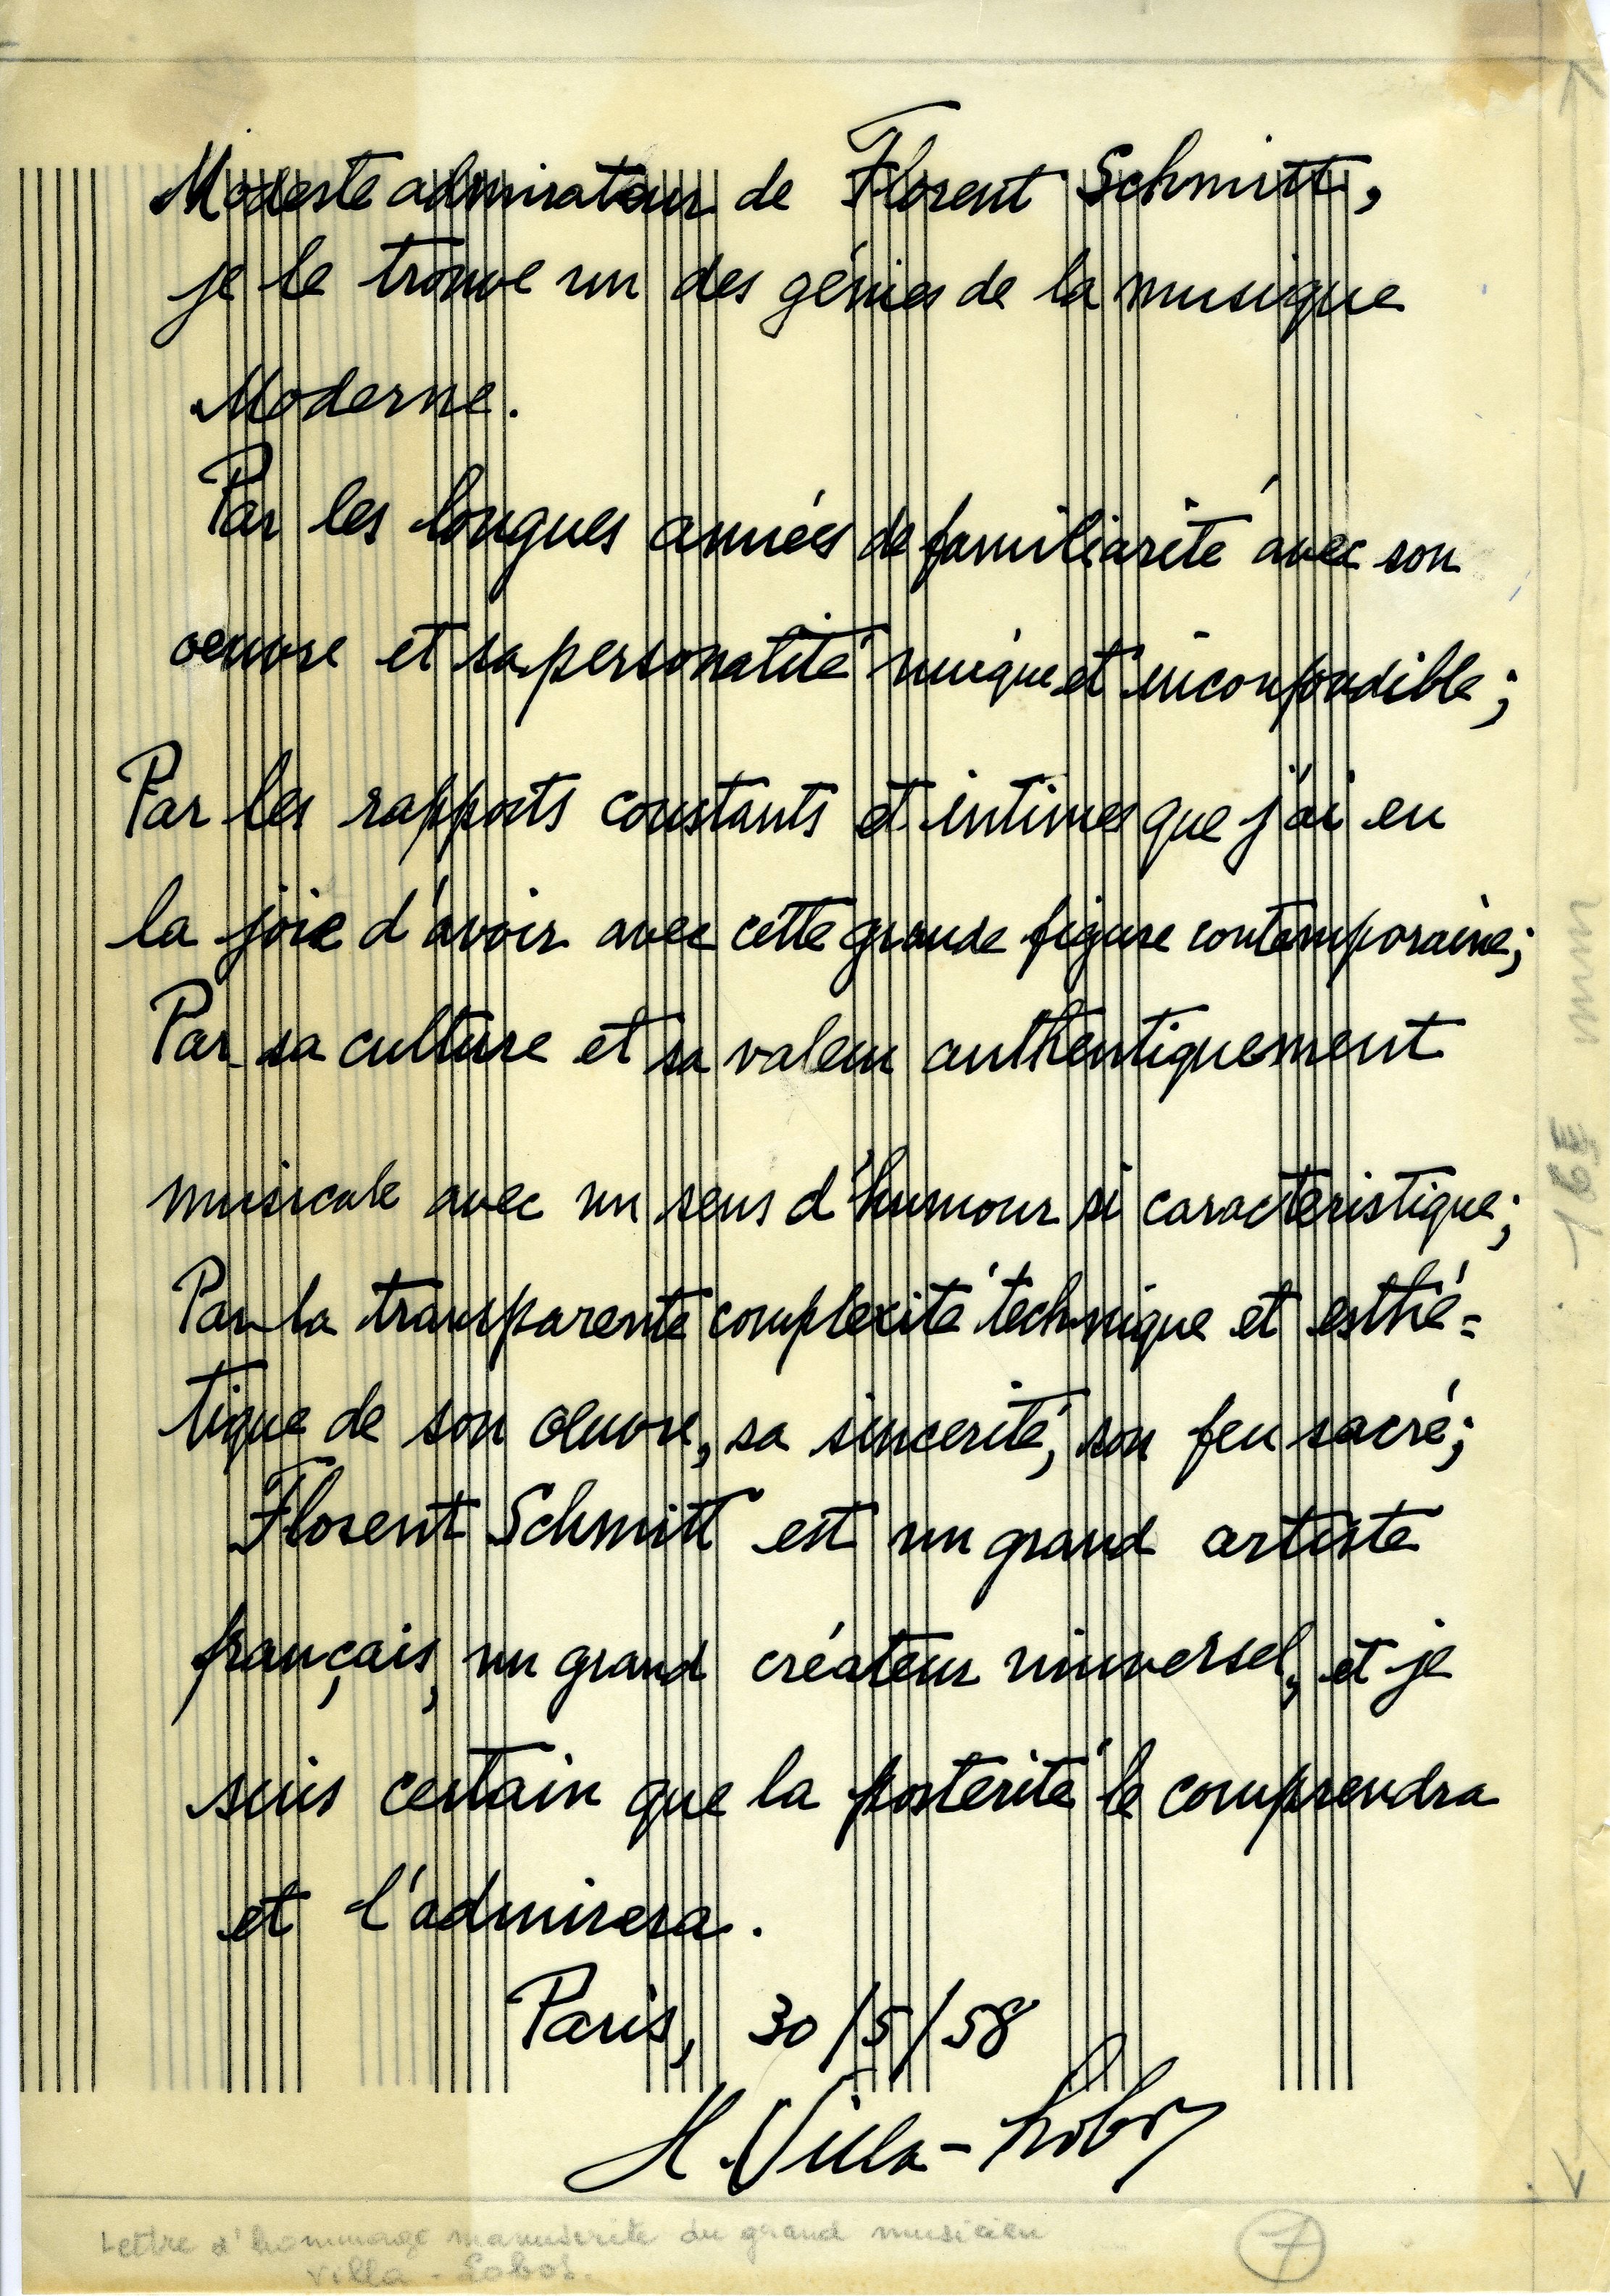 Modeste admirateur de Florent Schmitt,
je le trouve un des génies de la musique
Moderne.
Par les longues années de familiarité avec son
oeuvre et sa personalité unique et inconfondible;
Par les rapports constants et intimes que j'ai eu
la joie d'avoir avec cette grande figure contemporaine;
Par sa culture et sa valeur authentiquement
musicale avec un sens d'humour si caracteristique;
Par la transparente complexité téchnique et esthé=
tique de son oeuvre, sa sincerité, son feu sacré;
Florent Schmitt est un grand artiste
français, un grand créateur universel, et je
suis certain que la posterité le comprendra
et l'admirera.
Paris, 30/5/58
H. Villa-Lobos
Lettre d'hommage manuscrite du grand musicien
Villa-Lobos.
7
mm